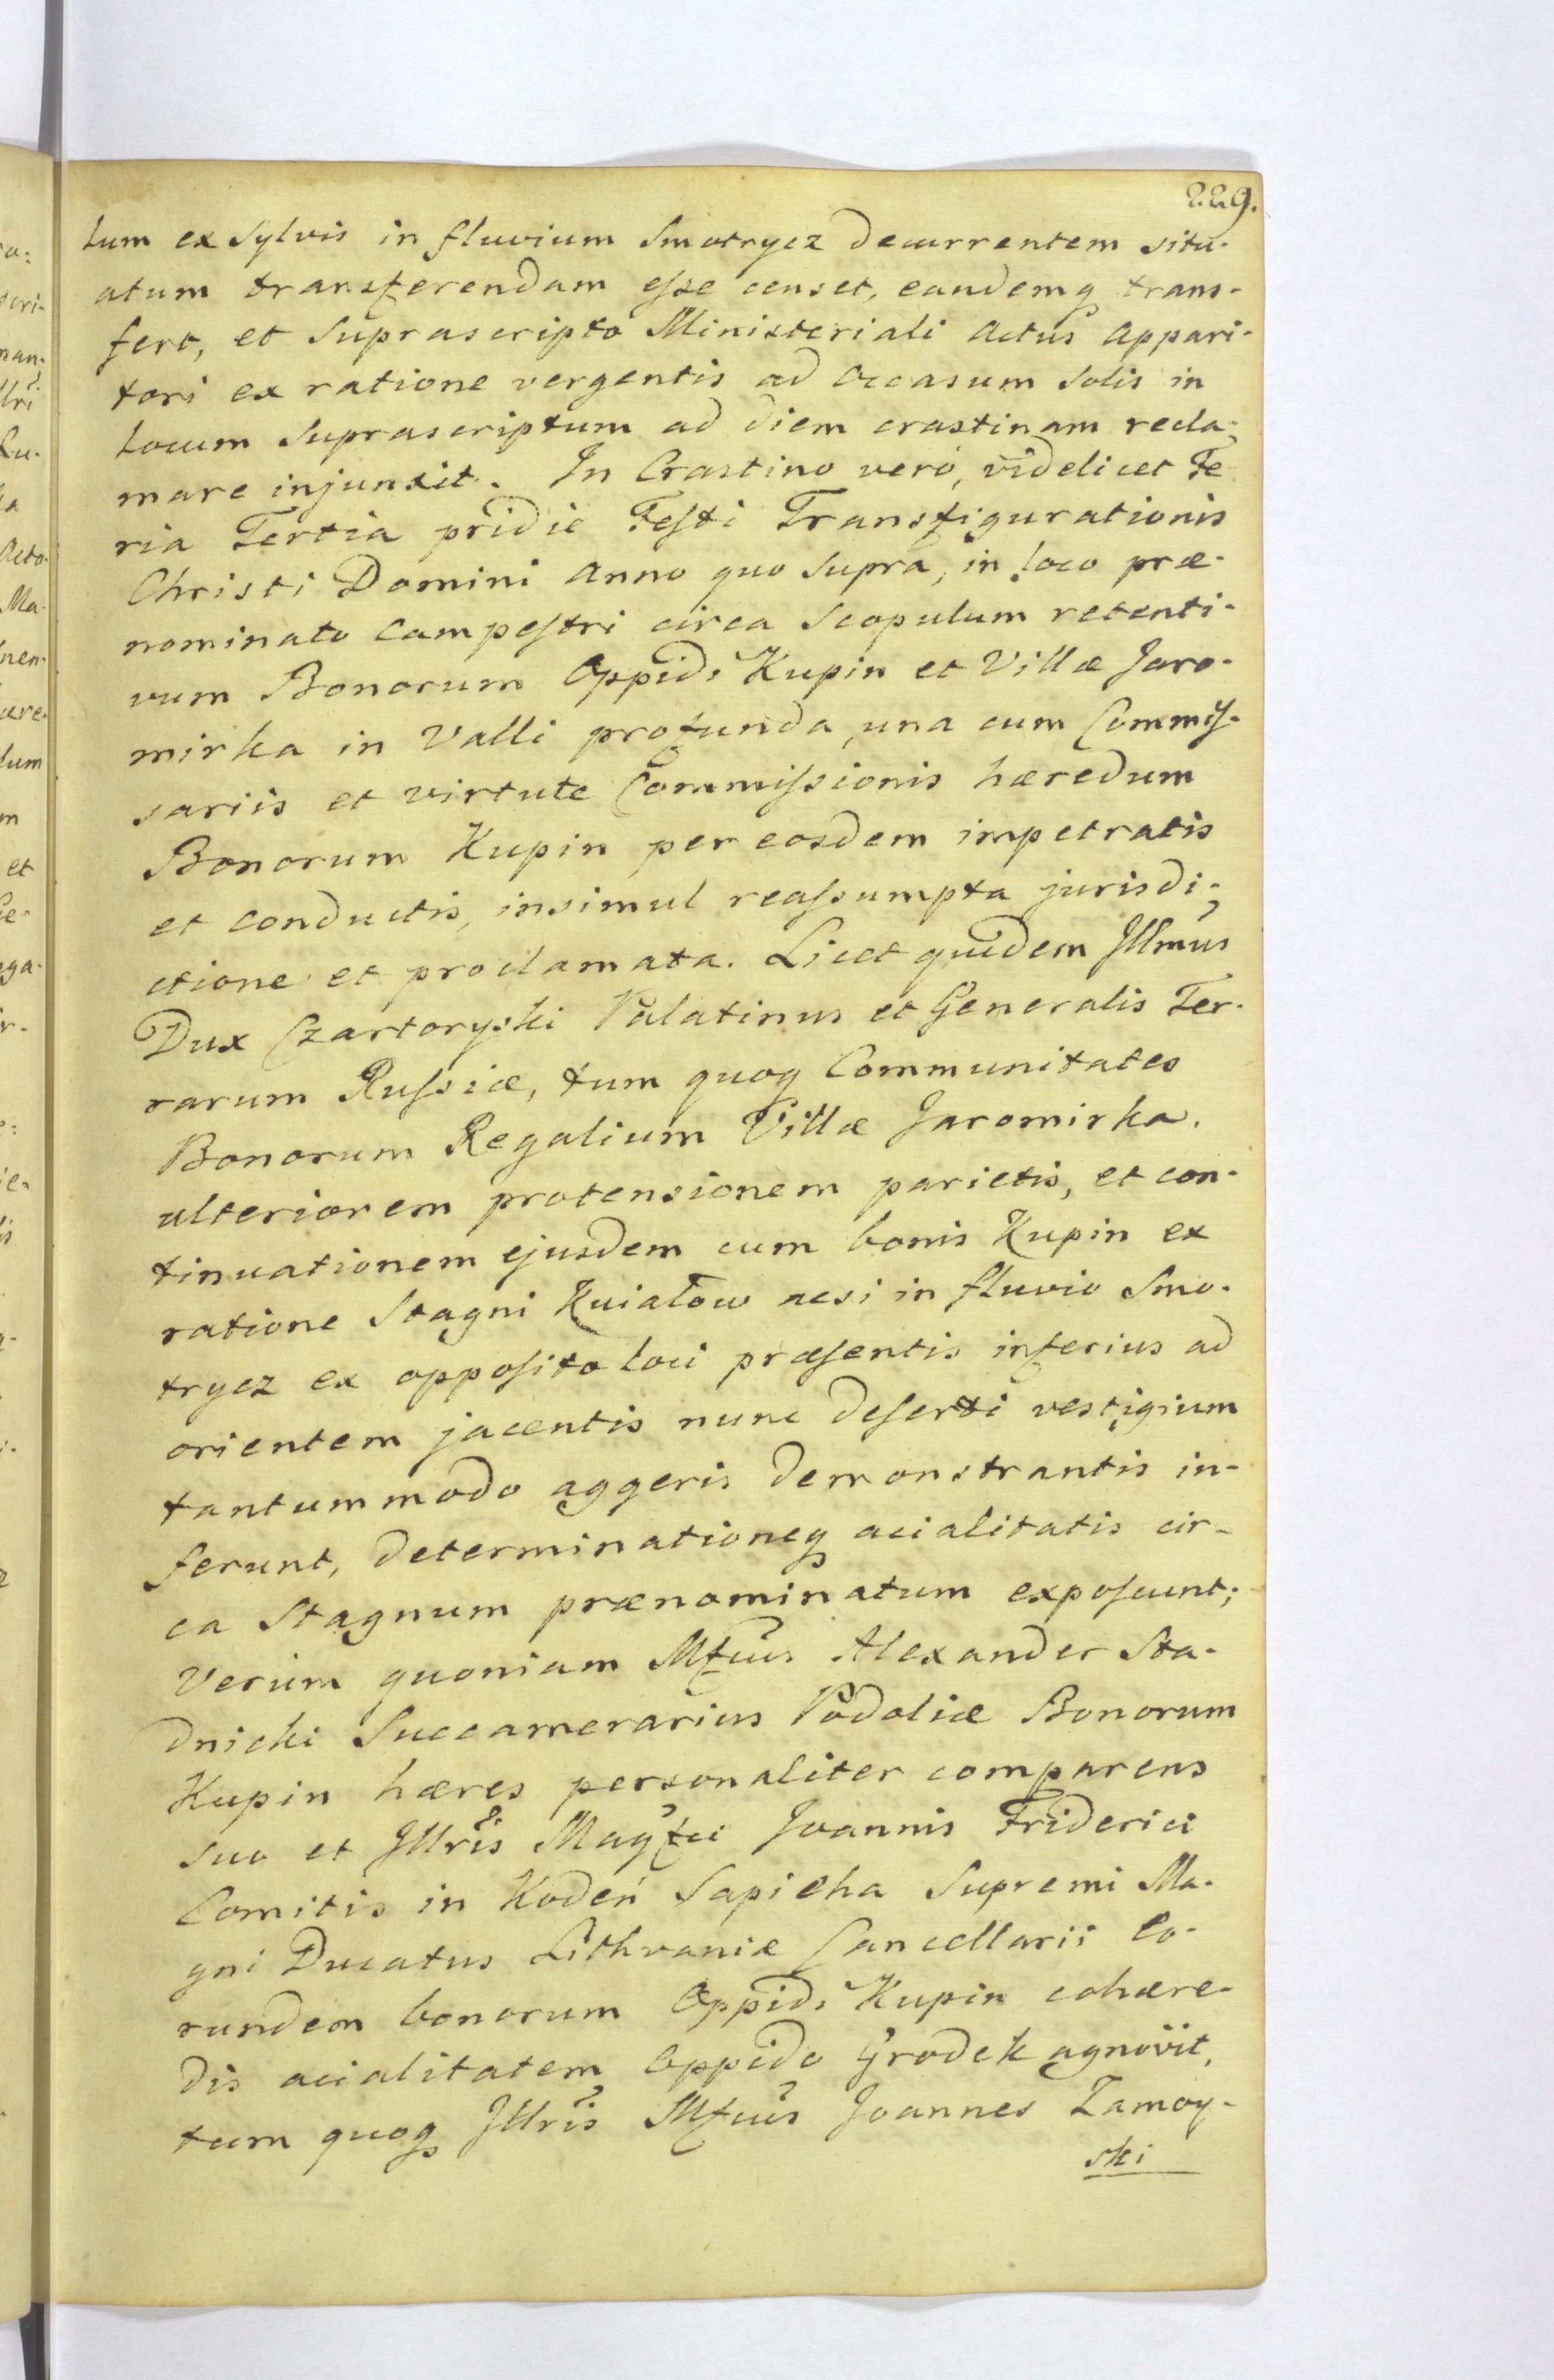 229.
tum ex Sylvis in fluvium Smotrycz decurrentem situ-
atum transferendam esse censet, eandemq trans-
fert, et Suprascripto Ministeriali Actus Appari-
tori ex ratione vergentis ad Occasum Solis in
Locum Suprascriptum ad diem crastinam recla-
mare injunxit. In Crastino verò, videlicet Fe
ria Tertia pridie Festi Transfigurationis
Christi Domini Anno quo Supra, in loco præ-
nominato Campestri circa Scopulum retenti-
vum Bonorum Oppidi Kupin et Villæ Jaro-
mirka in Valli profunda, una cum Commis-
sariis et virtute Commissionis hæredum
Bonorum Kupin per eosdem impetratis
et conductis, insimul reassumpta jurisdi-
ctione et proclamata. Licet quidem Illmus
Dux Czartoryski Palatinus et Generalis Ter-
rarum Russiæ, tum quoq Communitates
Bonorum Regalium Villæ Jaromirka.
ulteriorem protensionem parietis, et con-
tinuationem ejusdem cum bonis Kupin ex
ratione Stagni Kuiatow nesi in fluvio Smo-
trycz ex opposito loci præsentis inferius ad
orientem jacentis nunc deserti vestigium
tantummodo aggeris demonstrantis in-
ferunt, determinationeq acialitatis cir-
ca Stagnum prænominatum exposcunt;
Verùm quoniam Mfcus Alexander Sta-
dnicki Succamerarius Podoliæ Bonorum
Kupin hæres personaliter comparens
suo et Illris Magfci Joannis Friderici
Comitis in Kodeń Sapieha Supremi Ma-
gni Ducatus Lithvaniæ Cancellarii Eo-
rundem bonorum Oppidi Kupin cohære-
dis acialitatem Oppido Grodek agnovit,
tum quoq Illris Mfcus Joannes Zamoy-
ski